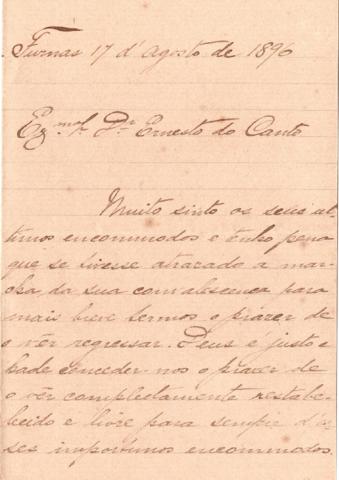 Furnas 17 d'Agosto de 1896
Ex.mo Sr. Dr Ernesto do Canto
Muito sinto os seus ul-
timos encommodos e tenho pena
que se tivesse atrazado a mar-
cha da sua convalescença para
mais breve termos o prazer de
o vêr regressar. Deus é justo e
hade conceder-nos o prazer de
o vêr completamente restabe-
lecido e livre para sempre d'es-
ses importunos encommodos.